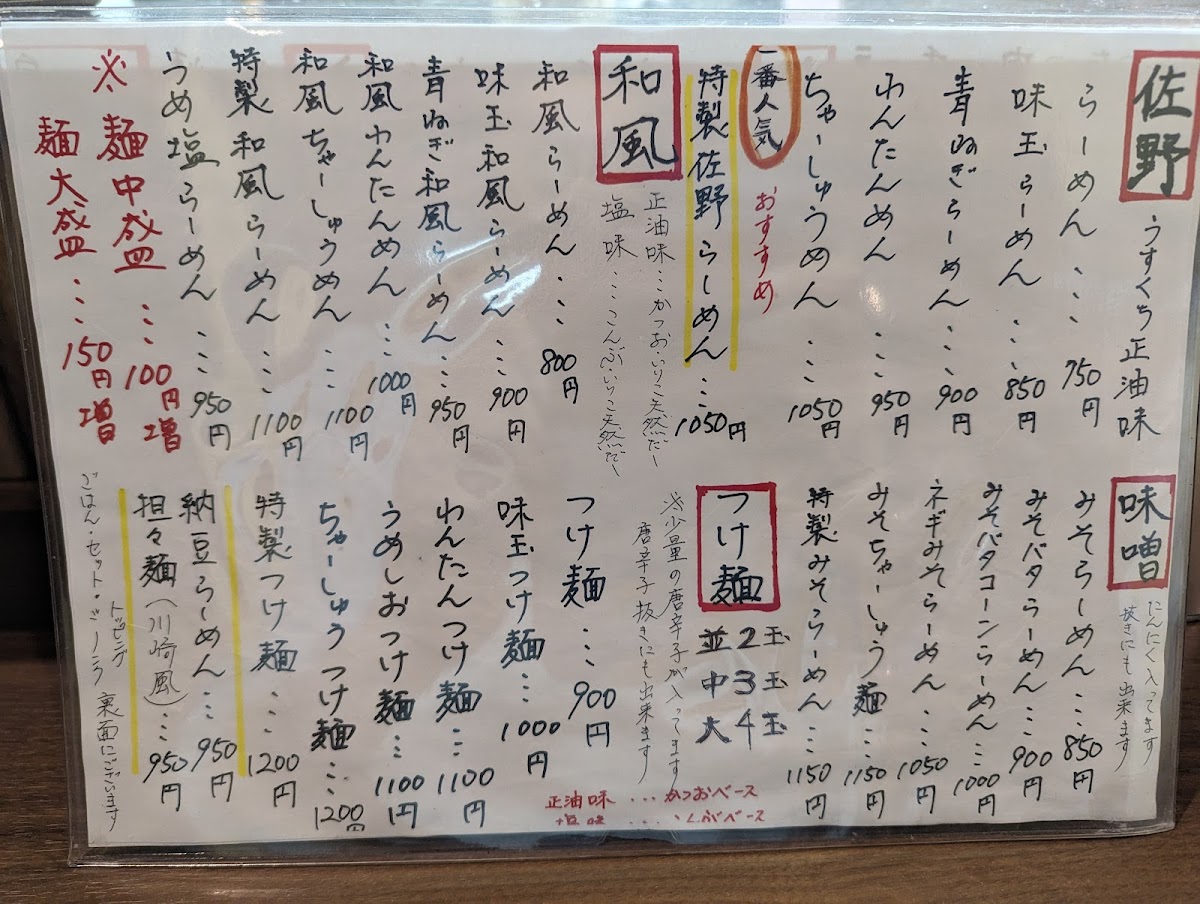 佐野 うすくち正油味
らーめん ... 750円
味玉らーめん ... 850円
青ねぎらーめん ... 900円
わんたんめん ... 950円
ちゃーしゅうめん ... 1050円
一番人気 おすすめ
特製佐野らーめん ... 1050円
和風
正油味...かつお・いりこ天然だし
塩味...こんぶ・いりこ天然だし
和風らーめん ... 800円
味玉和風らーめん ... 900円
青ねぎ和風らーめん ... 950円
和風わんたんめん ... 1000円
和風ちゃーしゅうめん ... 1100円
特製和風らーめん ... 1100円
うめ塩らーめん ... 950円
※麺中盛 ... 100円増
麺大盛 ... 150円増
味噌
にんにく入ってます
抜きにも出来ます
みそらーめん ... 850円
みそバタらーめん ... 900円
みそバタコーンらーめん ... 1000円
ネギみそらーめん ... 1050円
みそちゃーしゅう麺 ... 1150円
特製みそらーめん ... 1150円
つけ麺
並2玉
中3玉
大4玉
※少量の唐辛子が入ってます
唐辛子抜きにも出来ます
つけ麺 ... 900円
味玉つけ麺 ... 1000円
わんたんつけ麺 ... 1100円
うめしおつけ麺 ... 1100円
ちゃーしゅうつけ麺 ... 1200円
特製つけ麺 ... 1200円
納豆らーめん ... 950円
担々麺(川崎風) ... 950円
トッピング
ごはん・セット・ 裏面にございます
正油味 ... かつおベース
塩味 ... こんぶベース